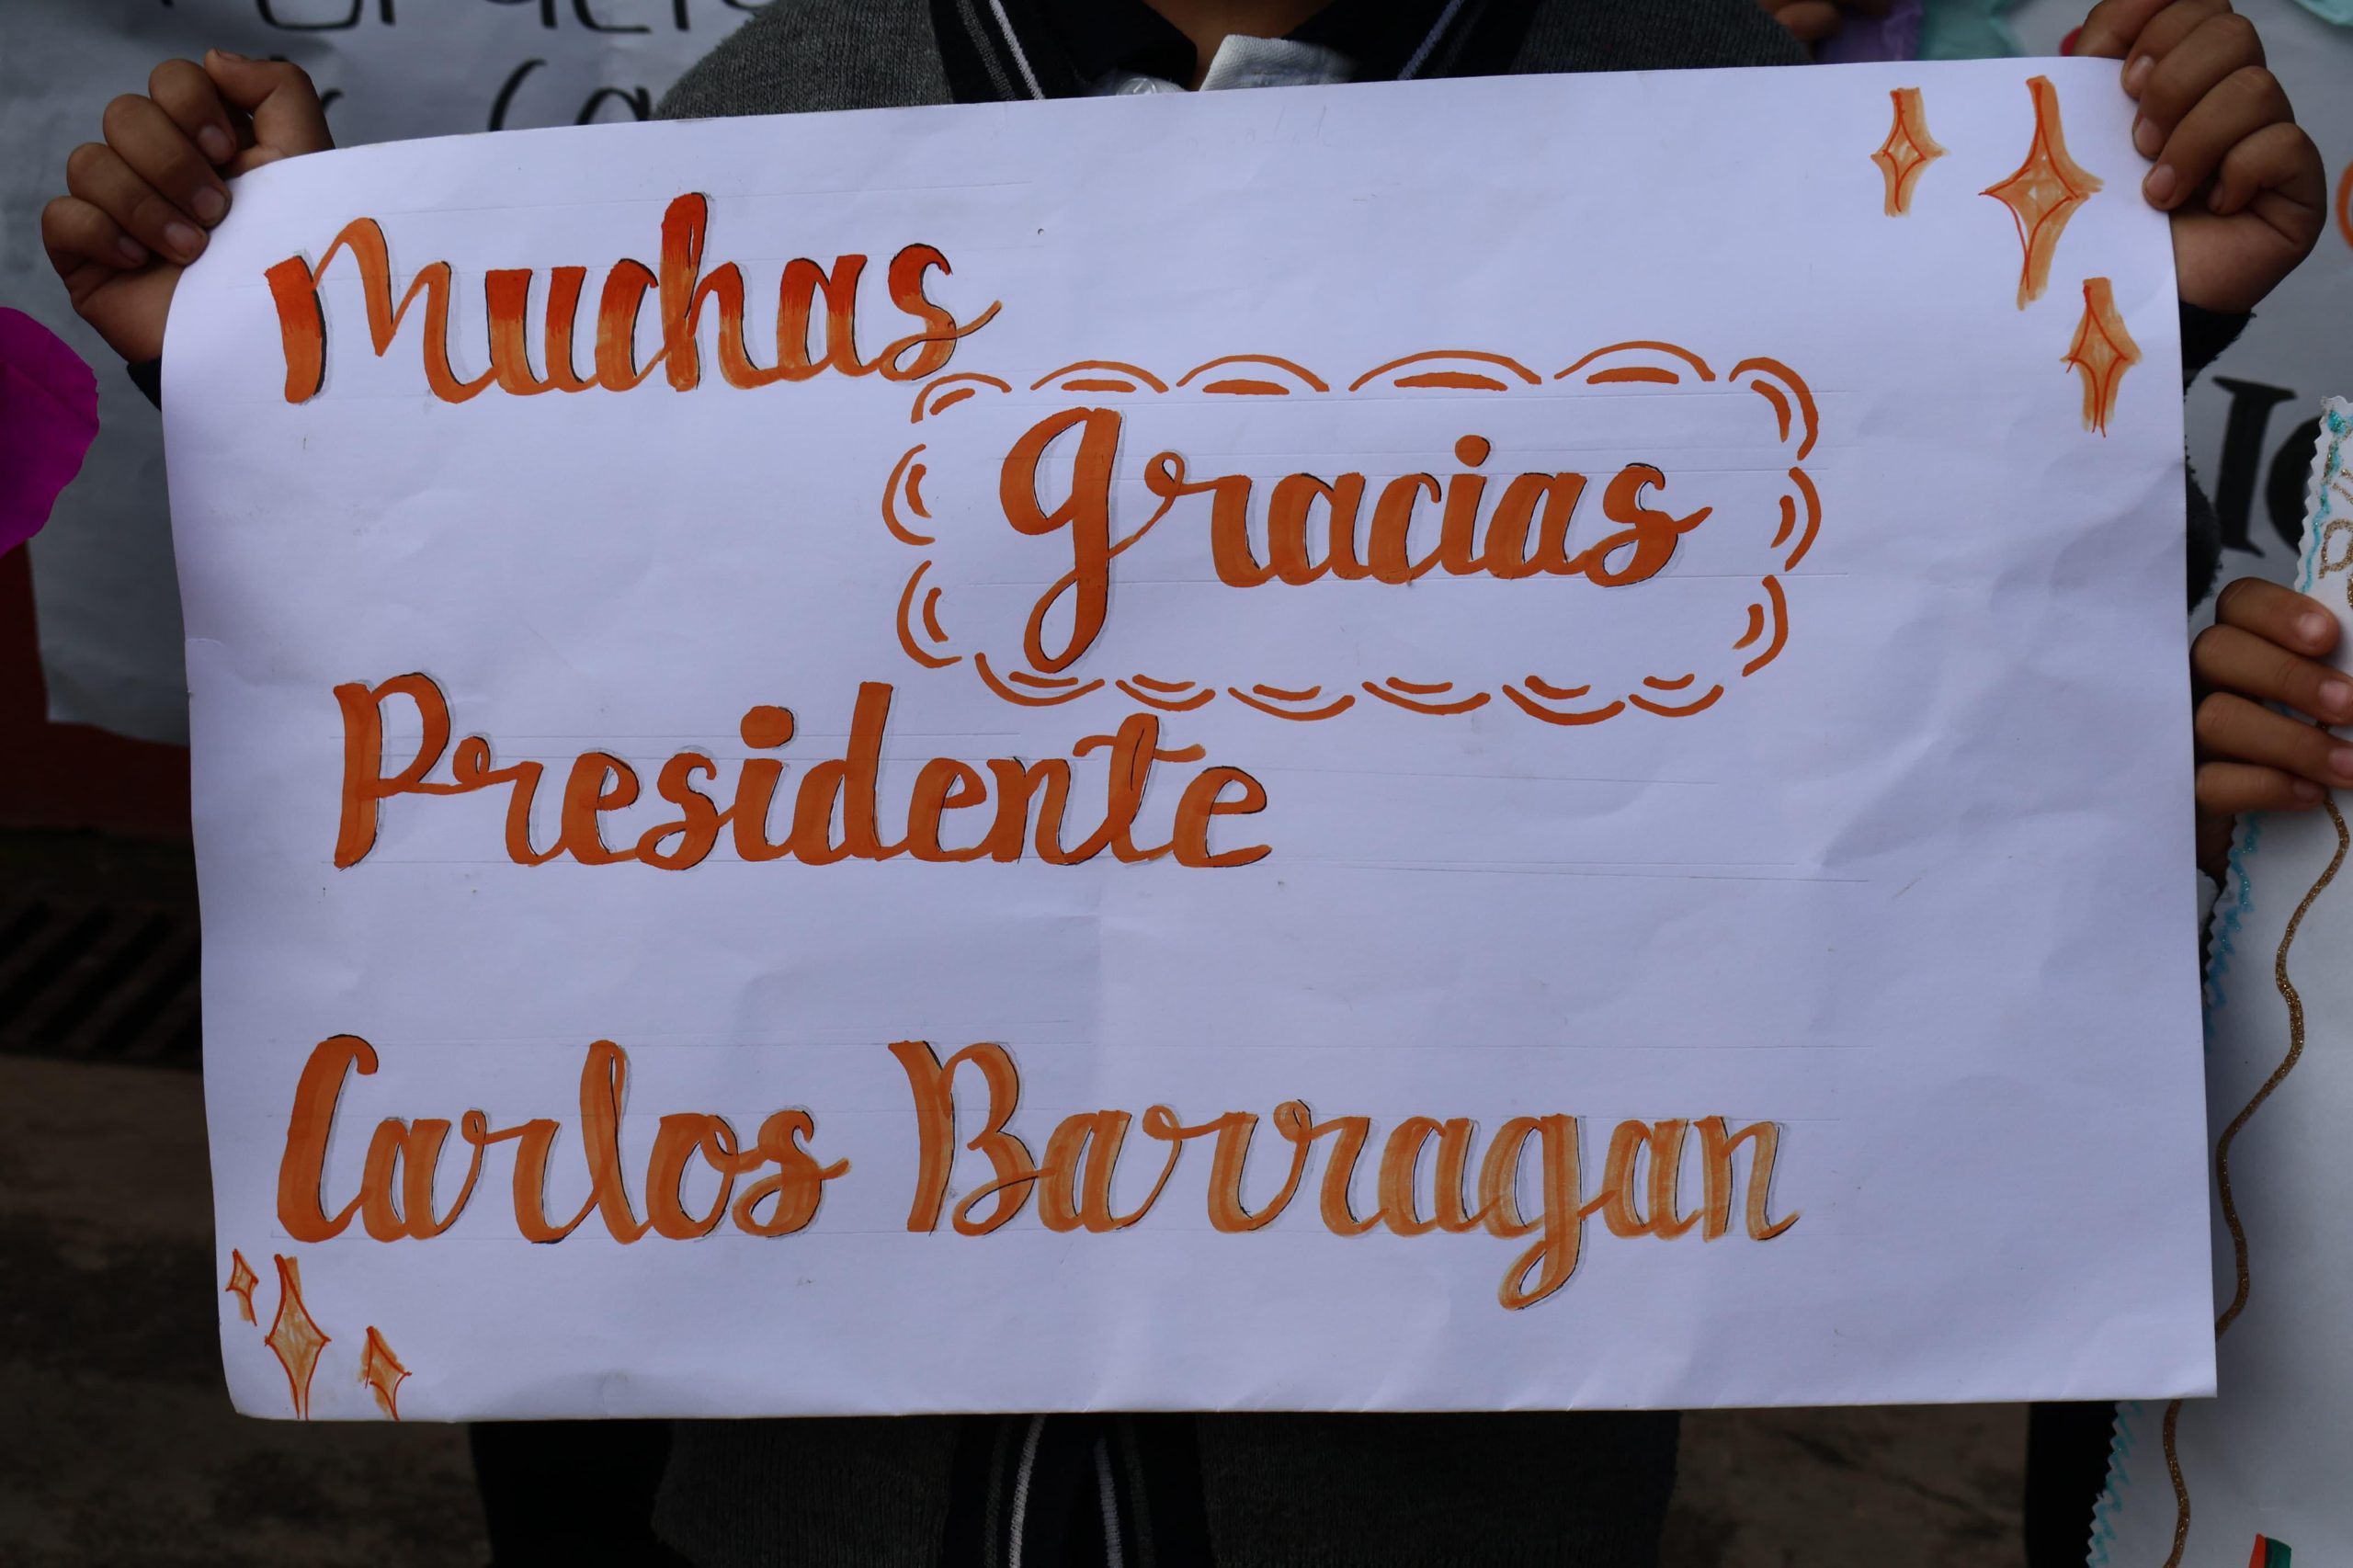 Muchas
Gracias
Presidente
Carlos Barragan